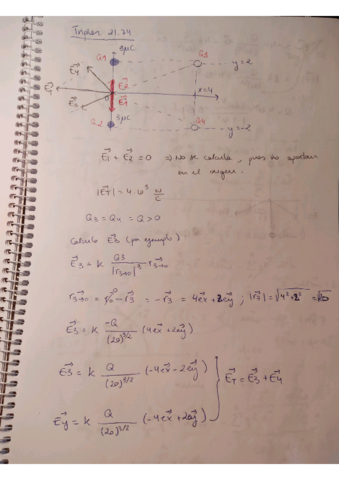 Tipler 21.74
Q1 5μC
Q3
y=2
E4
E2
E3
E1
x=4
Q2 5μC
Q4
y=-2
E⃗1 + E⃗2 = 0 ⇒ No se calcula, pues no aportan
en el origen.
|E⃗T| = 4·10³ N/C
Q3 = Q4 = Q > 0
Calculo E⃗3 (por ejemplo):
E⃗3 = k Q3/|r⃗3→0|³ r⃗3→0
r⃗3→0 = r⃗0 - r⃗3 = -r⃗3 = 4e⃗x + 2e⃗y ; |r⃗3| = √4²+2² = √20
E⃗3 = k -Q/(20)^3/2 (4e⃗x + 2e⃗y)
E⃗3 = k Q/(20)^3/2 (-4e⃗x - 2e⃗y)
E⃗T = E⃗3 + E⃗4
E⃗4 = k Q/(20)^3/2 (-4e⃗x + 2e⃗y)